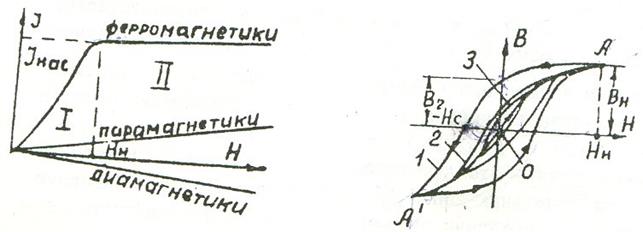 J
ферромагнетики
Jнас
II
I
парамагнетики
Hн
H
диамагнетики
B
A
3
B2
-Hc
Bн
H
Hн
2
1
0
A'